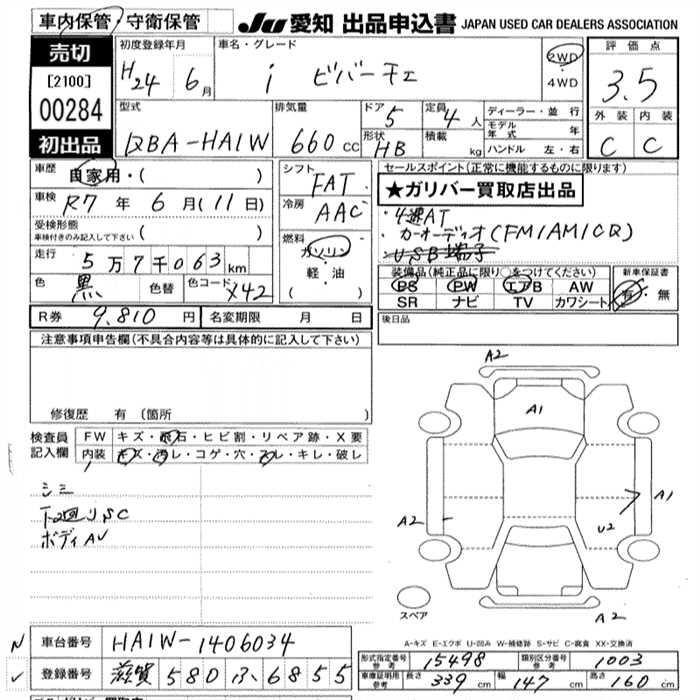 車内保管・守衛保管
JU 愛知 出品申込書 JAPAN USED CAR DEALERS ASSOCIATION
売切
[2100]
00284
初出品
初度登録年月
H24 6月
車名・グレード
i ビバーチェ
2WD
4WD
評価点
3.5
外装 内装
C C
型式
DBA-HA1W
排気量
660 cc
ドア 5
形状 HB
定員 4人
積載 kg
ディーラー・並行
モデル年式 年
ハンドル 左・右
車歴
自家用・( )
車検
R7年 6月(11日)
受検形態
車検付きのみ記入して下さい ( )
走行
5万7千063km
色
黒
色替
色コード X42
シフト
FAT
冷房
AAC
燃料
ガソリン
軽・油
( )
セールスポイント(正常に機能するものに限ります)
★ガリバー買取店出品
4速AT
カーオーディオ(FM/AM/CD)
USB端子
装備品(純正品に限り○をつけてください)
PS PW エアB AW
SR ナビ TV カワシート
新車保証書
有・無
R券 9,810円
名変期限 月 日
後日品
注意事項申告欄(不具合内容等は具体的に記入して下さい)
修復歴 有 (箇所
検査員記入欄
FW キズ・飛石・ヒビ割・リペア跡・X要
内装 キズ・汚レ・コゲ・穴・スレ・キレ・破レ
シミ
下廻りSC
ボディAU
A2
A1
A2
A1
U2
A2
スペア
A-キズ E-エクボ U-凹み W-補修跡 S-サビ C-腐食 XX-交換済
N 車台番号 HA1W-1406034
✓ 登録番号 滋賀 580 ふ 6855
形式指定番号 参考 15498
類別区分番号 参考 1003
車庫証明用 参考 長さ 339 cm 幅 147 cm 高さ 160 cm